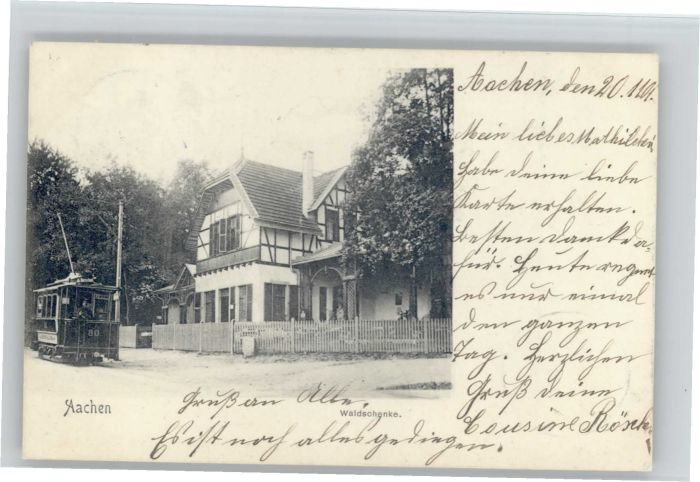 Aachen, den 20.
Mein liebes Mathildchen
habe deine liebe
Karte erhalten.
Besten Danck da-
für. Heute regnet
es nur einmal
den ganzen
Tag. Herzlichen
Gruß deine
Cousine Rösch
80
Aachen
Waldschenke.
Gruß an Alle.
Es ist noch alles gediegen.